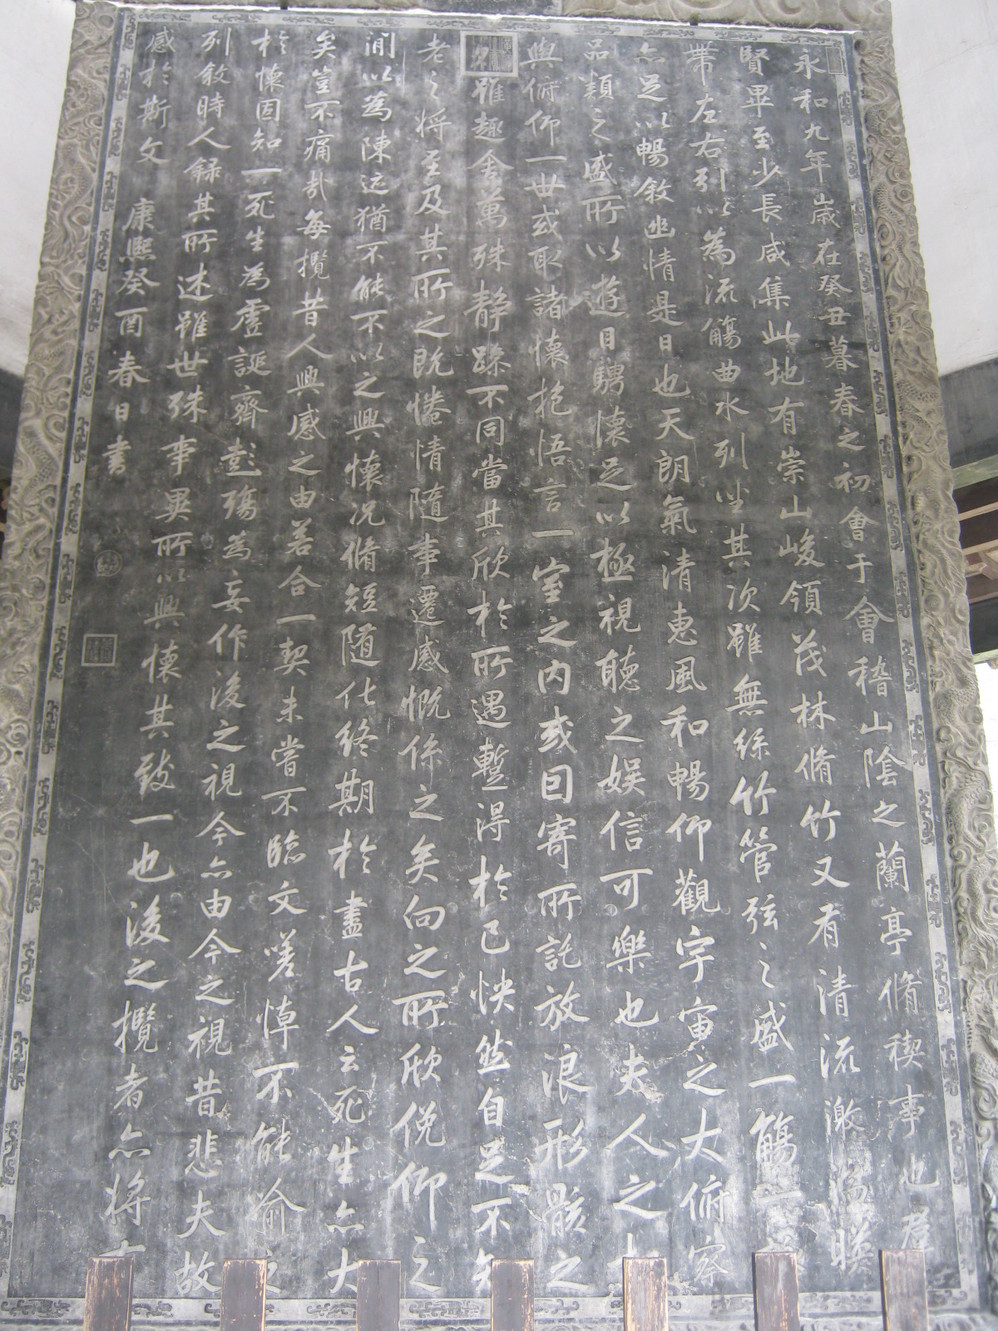 永和九年歲在癸丑暮春之初會于會稽山陰之蘭亭脩禊事也羣
賢畢至少長咸集此地有崇山峻領茂林脩竹又有清流激湍暎
帶左右引以為流觴曲水列坐其次雖無絲竹管弦之盛一觴
亦足以暢敘幽情是日也天朗氣清惠風和暢仰觀宇宙之大俯察
品類之盛所以遊目騁懷足以極視聽之娛信可樂也夫人之相
與俯仰一世或取諸懷抱悟言一室之內或因寄所託放浪形骸之
外雖趣舍萬殊靜躁不同當其欣於所遇蹔得於己怏然自足不知
老之將至及其所之既惓情隨事遷感慨係之矣向之所欣俛仰之
間以為陳迹猶不能不以之興懷況脩短隨化終期於盡古人云死生亦大
矣豈不痛哉每攬昔人興感之由若合一契未嘗不臨文嗟悼不能喻之
於懷固知一死生為虛誕齊彭殤為妄作後之視今亦由今之視昔悲夫故
列敘時人錄其所述雖世殊事異所以興懷其致一也後之攬者亦將有
感於斯文 康熙癸酉春日書